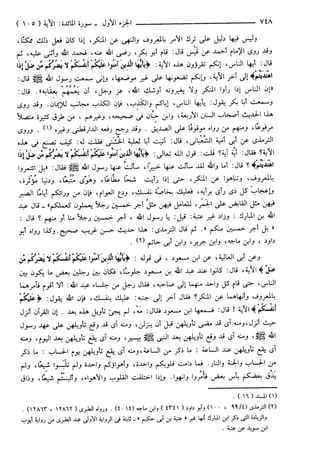 ٧٤٨ الجزء الأول - سورة المائدة: الآية ( ١٠٥ )
وليس فيها دليل على ترك الأمر بالمعروف والنهي عن المنكر، إذا كان فعل ذلك ممكنًا،
وقد روى الإمام أحمد عن قيس قال: قام أبو بكر، رضي الله عنه، فحمد الله وأثنى عليه، ثم
قال: أيها الناس، إنكم تقرؤون هذه الآية: ﴿يَأَيُّهَا الَّذِينَ آمَنُوا عَلَيْكُمْ أَنْفُسَكُمْ لَا يَضُرُّكُمْ مَنْ ضَلَّ إِذَا
اهْتَدَيْتُمْ﴾ إلى آخر الآية، وإنكم تضعونها على غير موضعها، وإني سمعت رسول الله ﷺ قال:
«إن الناس إذا رأوا المنكر ولا يغيرونه أوشك الله، عز وجل، أن يَعُمَّهُمْ بعقابه». قال:
وسمعت أبا بكر يقول: يأيها الناس، إياكم والكذب، فإن الكذب مجانب للإيمان. وقد روى
هذا الحديث أصحاب السنن الأربعة، وابن حبان في صحيحه، وغيرهم، من طرق كثيرة متصلاً
مرفوعًا، ومنهم من رواه موقوفًا على الصديق. وقد رجح رفعه الدارقطني وغيره(١). وروى
الترمذي عن أبي أمية الشَّعْباني، قال: أتيت أبا ثعلبة الخُشَني فقلت له: كيف تصنع في هذه
الآية؟ فقال: أيَّة آية؟ قلت: قول الله تعالى: ﴿يَأَيُّهَا الَّذِينَ آمَنُوا عَلَيْكُمْ أَنْفُسَكُمْ لَا يَضُرُّكُمْ مَنْ ضَلَّ إِذَا
اهْتَدَيْتُمْ﴾ ؟ قال: أما والله لقد سألت عنها خبيرًا، سألت عنها رسول الله ﷺ فقال: «بل ائتمروا
بالمعروف، وتناهوا عن المنكر، حتى إذا رأيت شُحًّا مطاعًا، وهَوًى متبعًا، ودنيا مؤثرة،
وإعجاب كل ذي رأي برأيه، فعليك بخاصة نفسك، ودع العوام، فإن من ورائكم أيامًا الصبر
فيهن مثل القابض على الجَمْر، للعامل فيهن مثلُ أجر خمسين رجلاً يعملون كعملكم» ـ قال عبد
الله بن المبارك: وزاد غير عتبة: قيل: يا رسول الله، أجر خمسين رجلاً منا أو منهم ؟ قال:
« بل أجر خمسين منكم ». ثم قال الترمذي: هذا حديث حسن غريب صحيح. وكذا رواه أبو
داود، وابن ماجه، وابن جرير، وابن أبي حاتم(٢).
وعن أبي العالية، عن ابن مسعود، في قوله : ﴿يَأَيُّهَا الَّذِينَ آمَنُوا عَلَيْكُمْ أَنْفُسَكُمْ لَا يَضُرُّكُمْ مَنْ
ضَلَّ﴾ الآية، قال: كانوا عند عبد الله بن مسعود جلوسًا، فكان بين رجلين بعض ما يكون بين
الناس، حتى قام كل واحد منهما إلى صاحبه، فقال رجل من جلساء عبد الله: ألا أقوم فآمرهما
بالمعروف وأنهاهما عن المنكر؟ فقال آخر إلى جنبه: عليك بنفسك، فإن الله يقول: ﴿عَلَيْكُمْ
أَنْفُسَكُمْ﴾ الآية ! قال: فسمعها ابن مسعود فقال: مَهْ، لم يجئ تأويل هذه بعد. إن القرآن أنزل
حيث أنزل، ومنه آي قد مضى تأويلهن قبل أن ينزلن، ومنه آي قد وقع تأويلهن على عهد رسول
الله ﷺ، ومنه آي قد وقع تأويلهن بعد النبي ﷺ بيسير، ومنه آي يقع تأويلهن بعد اليوم، ومنه
آي يقع تأويلهن عند الساعة : ما ذكر من الساعة، ومنه آي يقع تأويلهن يوم الحساب : ما ذكر
من الحساب والجنة والنار. فما دامت قلوبكم واحدة، وأهواؤكم واحدة ولم تلبَسوا شيعًا، ولم
يَذُق بعضكم بأس بعض فأمُروا وانهوا. وإذا اختلفت القلوب والأهواء، وألبستم شيعًا، وذاق
(١) المسند ( ١٦ ).
(٢) الترمذي ( ٩٩/٤ - ١٠٠ ) وأبو داود ( ٤٣٤١ ) وابن ماجه (٤٠١٤) . ورواه الطبري ( ١٢٨٦٢ ، ١٢٨٦٣ ) .